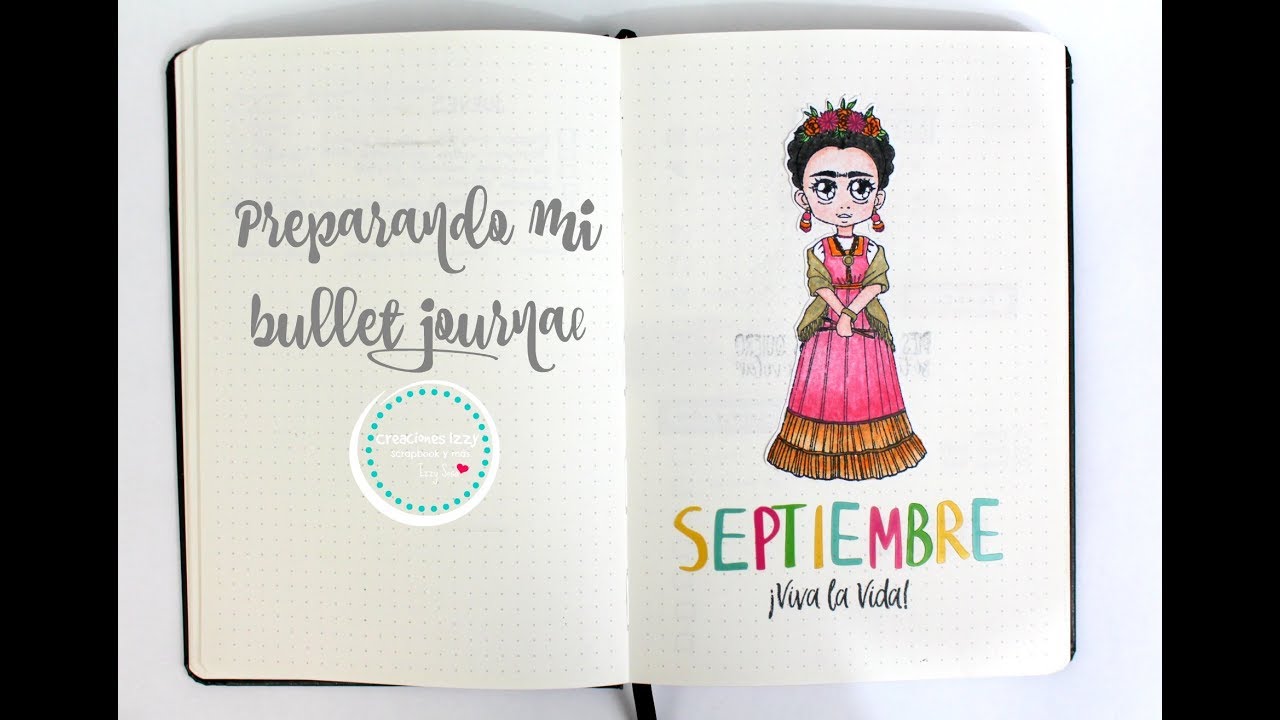 Preparando mi
bullet journal
Creaciones Izzy
scrapbook y más
SEPTIEMBRE
¡Viva la Vida!